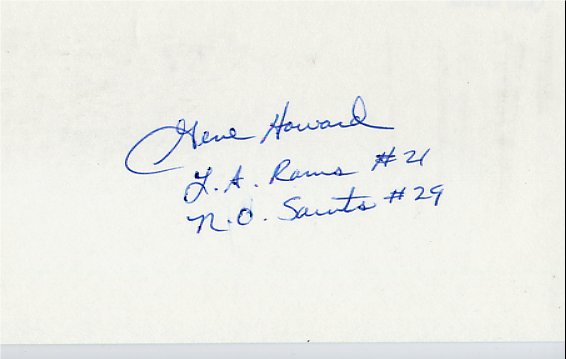 Gene Howard
L.A. Rams #21
N.O. Saints #29